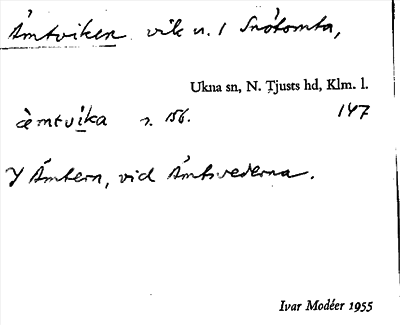 Åmtviken vik u. 1 Snötomta,
Ukna sn, N. Tjusts hd, Klm. l.
èmtvika s. 156. 147
I Åmtern, vid Åmtsvederna.
Ivar Modéer 1955